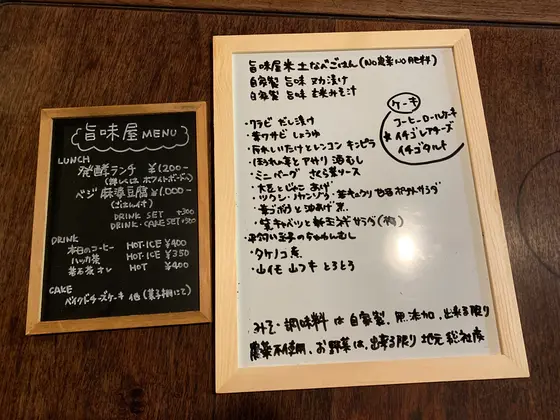 旨味屋 MENU
LUNCH
発酵ランチ ¥1200-
(詳しくは ホワイトボードへ)
ベジ 麻婆豆腐 ¥1,000-
(ごはん付)
DRINK SET +300
DRINK・CAKE SET +500
DRINK
本日のコーヒー HOT・ICE ¥400
ハッカ茶 HOT・ICE ¥350
オレ HOT ¥400
CAKE
ベイクドチーズケーキ 他 (菓子棚にて)
旨味屋米 土なべごはん (NO農薬 NO肥料)
自家製 旨味 ヌカ漬け
自家製 旨味 玄米みそ汁
・ワラビ だし漬け
・しょうゆ
・しいたけとレンコン キンピラ
・ほうれん草と アサリ 酒むし
・ミニバーグ ソース
・大豆とじゃこ あげ
・ツクシ・ サラダ
・ゴボウと油あげ 煮
・キャベツと新玉ネギ サラダ
・平飼い玉子のちゃわんむし
・タケノコ煮
・山イモ とろとろ
ケーキ
コーヒーロールケーキ
イチゴレアチーズ
イチゴタルト
みそ・調味料は自家製、無添加、出来る限り
農薬不使用、お野菜は、出来る限り 地元 総社産